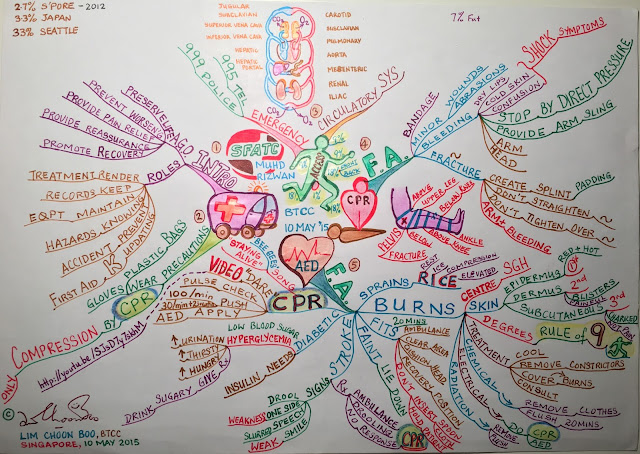 27% S'PORE - 2012
33% JAPAN
33% SEATTLE
7% Fut
JUGULAR
SUBCLAVIAN
SUPERIOR VENA CAVA
INFERIOR VENA CAVA
HEPATIC
HEPATIC PORTAL
CAROTID
SUBCLAVIAN
PULMONARY
AORTA
MESENTERIC
RENAL
ILIAC
CO₂
O₂
CIRCULATORY SYS
EMERGENCY
995 TEL
999 POLICE
SFATC
MUHD
RIZWAN
ACCIDENT
BTCC
10 MAY '15
INTRO
AGO
PRESERVE LIFE
PREVENT WORSENING
PROVIDE PAIN RELIEF
PROVIDE REASSURANCE
PROMOTE RECOVERY
ROLES
TREATMENT RENDER
RECORDS KEEP
EQPT MAINTAIN
HAZARDS KNOWING
ACCIDENT PREVENT
FIRST AID UPDATING
PLASTIC BAGS
GLOVES WEAR PRECAUTIONS
CPR
BY
COMPRESSION
ONLY
CPR
F.A.
BANDAGE
MINOR WOUNDS
ABRASIONS
BLEEDING
SHOCK SYMPTOMS
PALE LIPS
COLD SKIN
CONFUSION
STOP BY DIRECT PRESSURE
PROVIDE ARM SLING
ARM
HEAD
FRACTURE
CREATE SPLINT
PADDING
DON'T STRAIGHTEN
DON'T TIGHTEN OVER
ARM BLEEDING
PELVIS
ABOVE
UPPER LEG
BELOW KNEE
ANKLE
ABOVE KNEE
BELOW
FRACTURE
AED
BEE GEES SONG
"STAYING ALIVE"
VIDEO "DARE"
CPR
PULSE CHECK
100/min
PUSH
AED APPLY
F.A.
SPRAINS
RICE
REST
ICE
COMPRESSION
ELEVATED
BURNS
CENTRE SGH
SKIN
EPIDERMIS
RED + HOT
1st
DERMIS
BLISTERS
2nd
SUBCUTANEOUS
3rd
CHARRED
NOT PAIN
DEGREES
RULE OF 9
TREATMENT
COOL
REMOVE CONSTRICTORS
COVER BURNS
CONSULT
CHEMICAL
REMOVE CLOTHES
FLUSH 20MINS
ELECTRICAL
DO
CPR
AED
RADIATION
FITS
20MINS
AMBULANCE
CLEAR AREA
CUSHION HEAD
RECOVERY POSITION
DON'T INSERT SPOON
HOLD PERSON
CPR
FAINT
LIE DOWN
AMBULANCE
DROOLING
NO RESPONSE
STROKE
SIGNS
DROOL
ONE SIDE
WEAKNESS
SLURRED SPEECH
WEAK SMILE
DIABETIC
LOW BLOOD SUGAR
HYPERGLYCEMIA
↑ URINATION
↑ THIRSTY
↑ HUNGRY
INSULIN NEEDS
SUGARY GIVE
DRINK
©
LIM CHOON BOO, BTCC
SINGAPORE, 10 MAY 2015